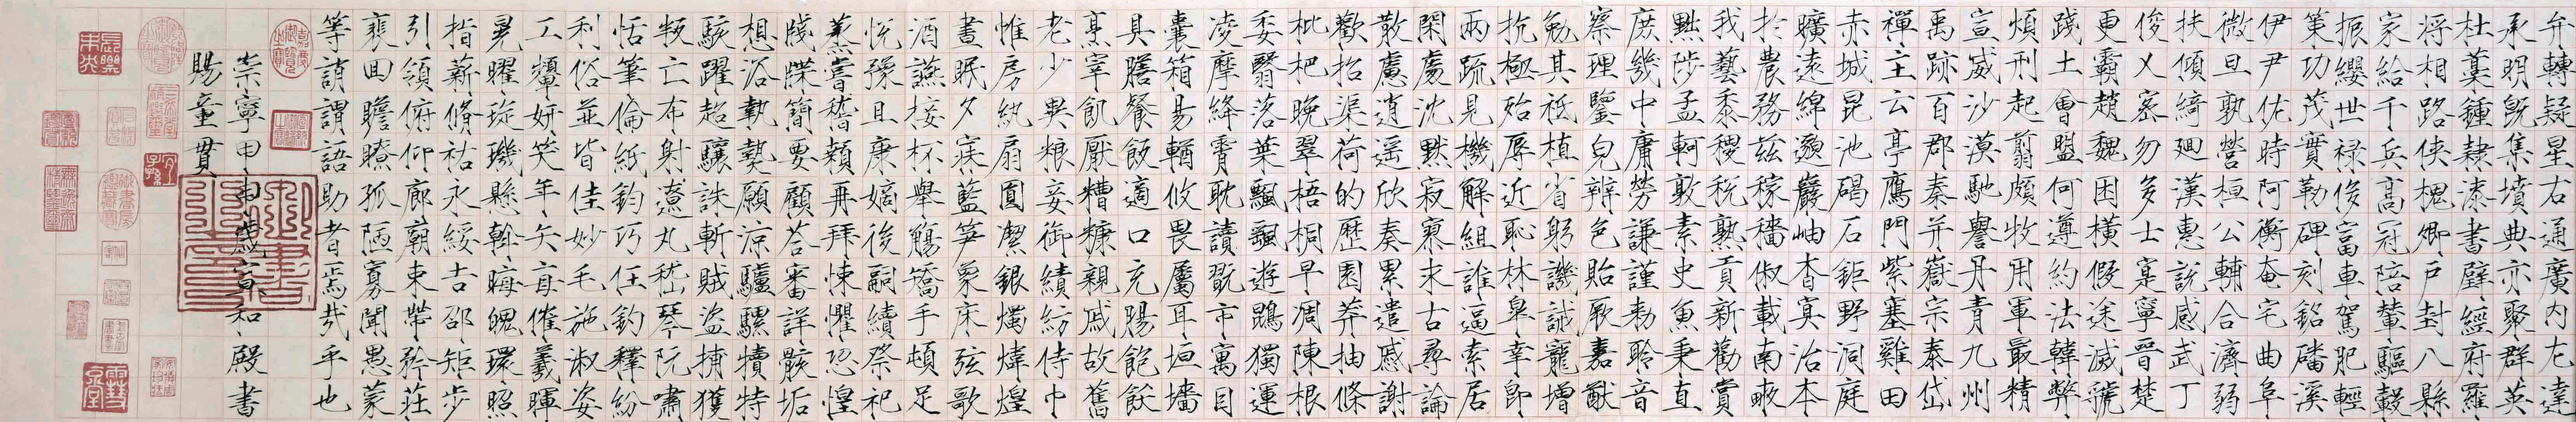 弁轉疑星右通廣内左達
承明既集墳典亦聚群英
杜藁鍾隸漆書壁經府羅
将相路俠槐卿戸封八縣
家給千兵高冠陪輦驅轂
振纓世禄侈富車駕肥輕
策功茂實勒碑刻銘磻溪
伊尹佐時阿衡奄宅曲阜
微旦孰營桓公輔合濟弱
扶傾綺廻漢惠說感武丁
俊乂密勿多士寔寧晉楚
更霸趙魏困橫假途滅虢
踐土會盟何遵約法韓弊
煩刑起翦頗牧用軍最精
宣威沙漠馳譽丹青九州
禹跡百郡秦并嶽宗泰岱
禪主云亭鴈門紫塞雞田
赤城昆池碣石鉅野洞庭
曠遠綿邈巖岫杳冥治本
於農務茲稼穡俶載南畝
我藝黍稷稅熟貢新勸賞
黜陟孟軻敦素史魚秉直
庶幾中庸勞謙謹勑聆音
察理鑒皃辨色貽厥嘉猷
勉其祗植省躬譏誡寵增
抗極殆辱近恥林皋幸即
兩疏見機解組誰逼索居
閑處沈默寂寥求古尋論
散慮逍遙欣奏累遣慼謝
歡招渠荷的歷園莽抽條
枇杷晚翠梧桐早凋陳根
委翳落葉飄颻遊鵾獨運
凌摩絳霄耽讀翫市寓目
囊箱易輶攸畏屬耳垣墻
具膳餐飯適口充腸飽飫
烹宰飢厭糟糠親戚故舊
老少異粮妾御績紡侍巾
帷房紈扇圓潔銀燭煒煌
晝眠夕寐藍笋象床弦歌
酒讌接杯舉觴矯手頓足
悅豫且康嫡後嗣續祭祀
蒸嘗稽顙再拜悚懼恐惶
牋牒簡要顧荅審詳骸垢
想浴執熱願涼驢騾犢特
駭躍超驤誅斬賊盜捕獲
叛亡布射遼丸嵇琴阮嘯
恬筆倫紙鈞巧任釣釋紛
利俗並皆佳妙毛施淑姿
工顰妍笑年矢每催羲暉
晃曜琁璣懸斡晦魄環照
指薪脩祜永綏吉邵矩步
引領俯仰廊廟束帶矜莊
裵回瞻瞭孤陋寡聞愚蒙
等誚謂語助者焉哉乎也
崇寧甲申歲宣和殿書
賜童貫
嘉慶御覽之寶
長樂未央
宜子孫